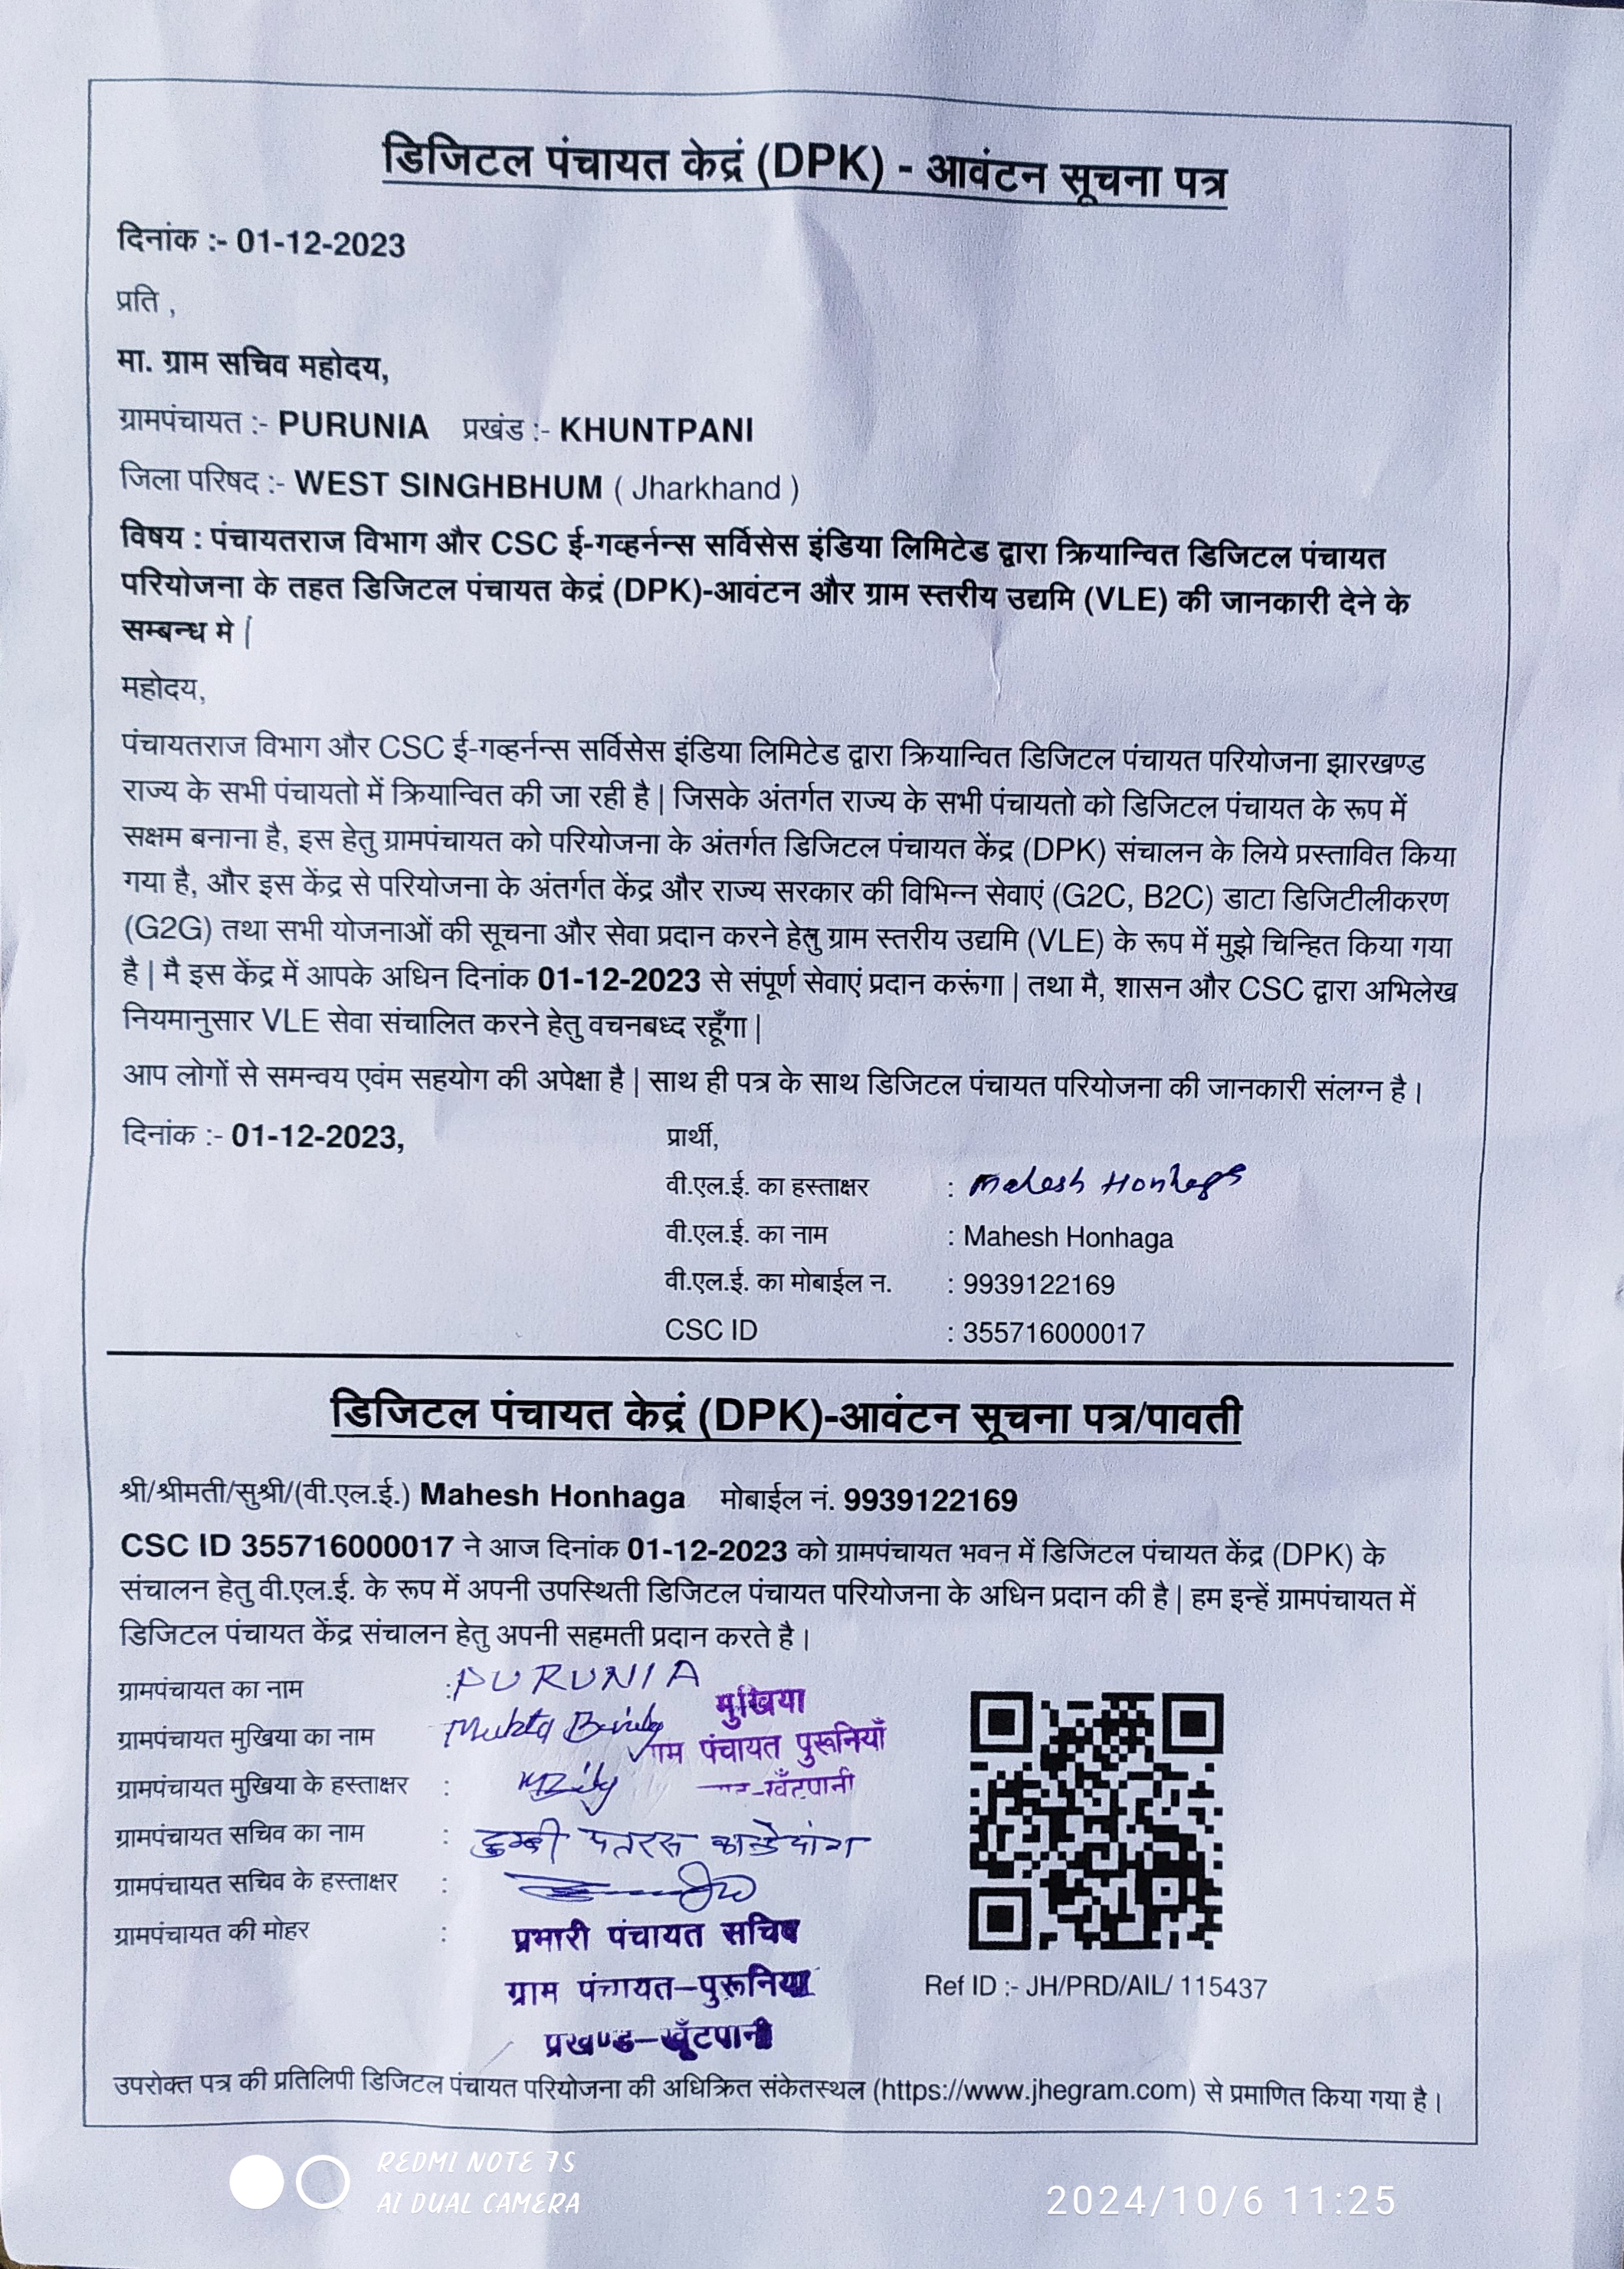 डिजिटल पंचायत केद्रं (DPK) - आवंटन सूचना पत्र
दिनांक :- 01-12-2023
प्रति ,
मा. ग्राम सचिव महोदय,
ग्रामपंचायत :- PURUNIA प्रखंड :- KHUNTPANI
जिला परिषद :- WEST SINGHBHUM ( Jharkhand )
विषय : पंचायतराज विभाग और CSC ई-गव्हर्नन्स सर्विसेस इंडिया लिमिटेड द्वारा क्रियान्वित डिजिटल पंचायत
परियोजना के तहत डिजिटल पंचायत केद्रं (DPK)-आवंटन और ग्राम स्तरीय उद्यमि (VLE) की जानकारी देने के
सम्बन्ध मे |
महोदय,
पंचायतराज विभाग और CSC ई-गव्हर्नन्स सर्विसेस इंडिया लिमिटेड द्वारा क्रियान्वित डिजिटल पंचायत परियोजना झारखण्ड
राज्य के सभी पंचायतो में क्रियान्वित की जा रही है | जिसके अंतर्गत राज्य के सभी पंचायतो को डिजिटल पंचायत के रूप में
सक्षम बनाना है, इस हेतु ग्रामपंचायत को परियोजना के अंतर्गत डिजिटल पंचायत केंद्र (DPK) संचालन के लिये प्रस्तावित किया
गया है, और इस केंद्र से परियोजना के अंतर्गत केंद्र और राज्य सरकार की विभिन्न सेवाएं (G2C, B2C) डाटा डिजिटीलीकरण
(G2G) तथा सभी योजनाओं की सूचना और सेवा प्रदान करने हेतु ग्राम स्तरीय उद्यमि (VLE) के रूप में मुझे चिन्हित किया गया
है | मै इस केंद्र में आपके अधिन दिनांक 01-12-2023 से संपूर्ण सेवाएं प्रदान करूंगा | तथा मै, शासन और CSC द्वारा अभिलेख
नियमानुसार VLE सेवा संचालित करने हेतु वचनबध्द रहूँगा |
आप लोगों से समन्वय एवंम सहयोग की अपेक्षा है | साथ ही पत्र के साथ डिजिटल पंचायत परियोजना की जानकारी संलग्न है।
दिनांक :- 01-12-2023, प्रार्थी,
वी.एल.ई. का हस्ताक्षर : Mahesh Honhaga
वी.एल.ई. का नाम : Mahesh Honhaga
वी.एल.ई. का मोबाईल न. : 9939122169
CSC ID : 355716000017
डिजिटल पंचायत केद्रं (DPK)-आवंटन सूचना पत्र/पावती
श्री/श्रीमती/सुश्री/(वी.एल.ई.) Mahesh Honhaga मोबाईल नं. 9939122169
CSC ID 355716000017 ने आज दिनांक 01-12-2023 को ग्रामपंचायत भवन में डिजिटल पंचायत केंद्र (DPK) के
संचालन हेतु वी.एल.ई. के रूप में अपनी उपस्थिती डिजिटल पंचायत परियोजना के अधिन प्रदान की है | हम इन्हें ग्रामपंचायत में
डिजिटल पंचायत केंद्र संचालन हेतु अपनी सहमती प्रदान करते है।
ग्रामपंचायत का नाम : PURUNIA
मुखिया
ग्रामपंचायत मुखिया का नाम Mukta
ग्राम पंचायत पुरूनियाँ
ग्रामपंचायत मुखिया के हस्ताक्षर :
खूँटपानी
ग्रामपंचायत सचिव का नाम :
ग्रामपंचायत सचिव के हस्ताक्षर :
ग्रामपंचायत की मोहर :
प्रभारी पंचायत सचिव
ग्राम पंचायत-पुरूनिया
प्रखण्ड-खूँटपानी
Ref ID :- JH/PRD/AIL/ 115437
उपरोक्त पत्र की प्रतिलिपी डिजिटल पंचायत परियोजना की अधिक्रित संकेतस्थल (https://www.jhegram.com) से प्रमाणित किया गया है।
REDMI NOTE 7S
AI DUAL CAMERA
2024/10/6 11:25